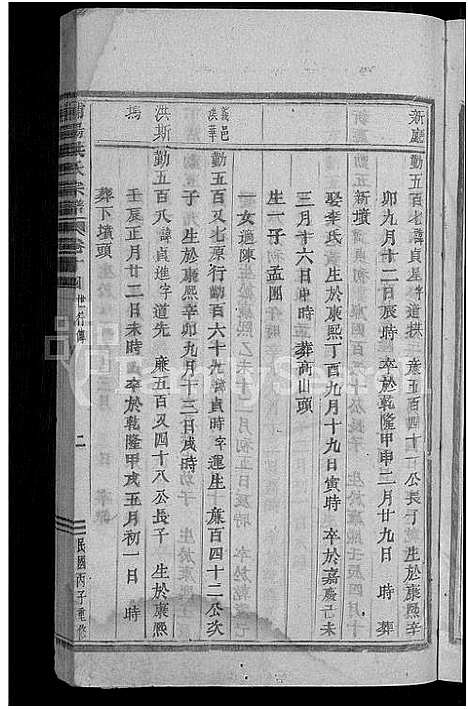 新廳 勤五百七諱貞星字道拱 廉五百四十一公長子 生於康熙辛
卯九月十二日辰時 卒於乾隆甲申二月廿九日 時 葬
新墳
娶李氏 生於康熙丁酉九月十九日寅時 卒於嘉慶己未
三月十六日申時 葬高山頭
生一子 孟團
一女適陳
義邑洪華 勤五百又七原行勤百六十九諱貞時字運生 廉百四十二公次
子 生於康熙辛卯九月十三日戌時
洪斯塢 勤五百八諱貞進字道先 廉五百又四十八公長子 生於康熙
壬辰正月廿二日未時 卒於乾隆甲戌五月初一日 時
葬下墳頭
氏宗譜
二
民國丙子重修
FamilySearch